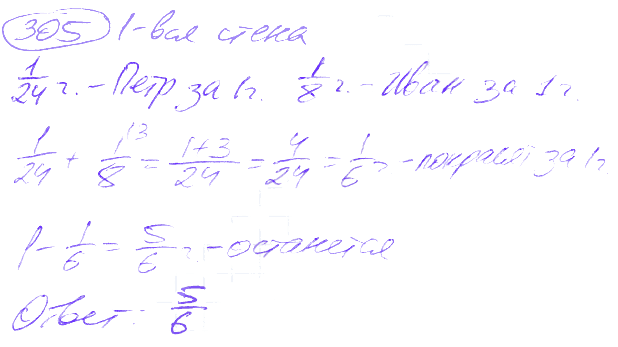 305 1-вая стена
1/24 г. - Петр за 1г. 1/8 г. - Иван за 1 г.
1/24 + 1/8^13 = 1+3/24 = 4/24 = 1/6 г - покрасят за 1г.
1 - 1/6 = 5/6 г. - останется
Ответ: 5/6